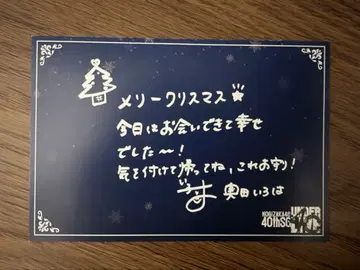 メリークリスマス
今日はお会いできて幸せ
でした〜!
気を付けて帰ってね、これお守り!
いろは
奥田いろは
NOGIZAKA46
40thSG
UNDER